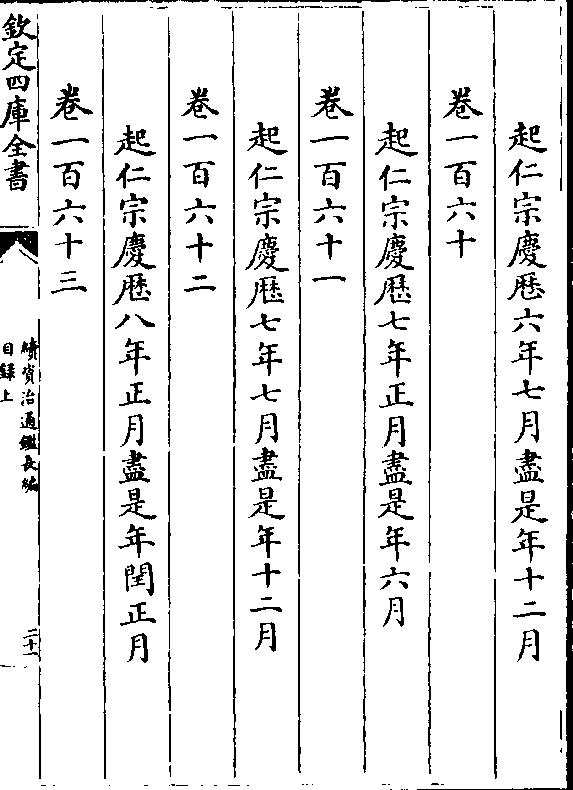 起仁宗慶厯六年七月盡是年十二月
卷一百六十
起仁宗慶厯七年正月盡是年六月
卷一百六十一
起仁宗慶厯七年七月盡是年十二月
卷一百六十二
起仁宗慶厯八年正月盡是年閏正月
卷一百六十三
欽定四庫全書
續資治通鑑長編
目録上
二十一